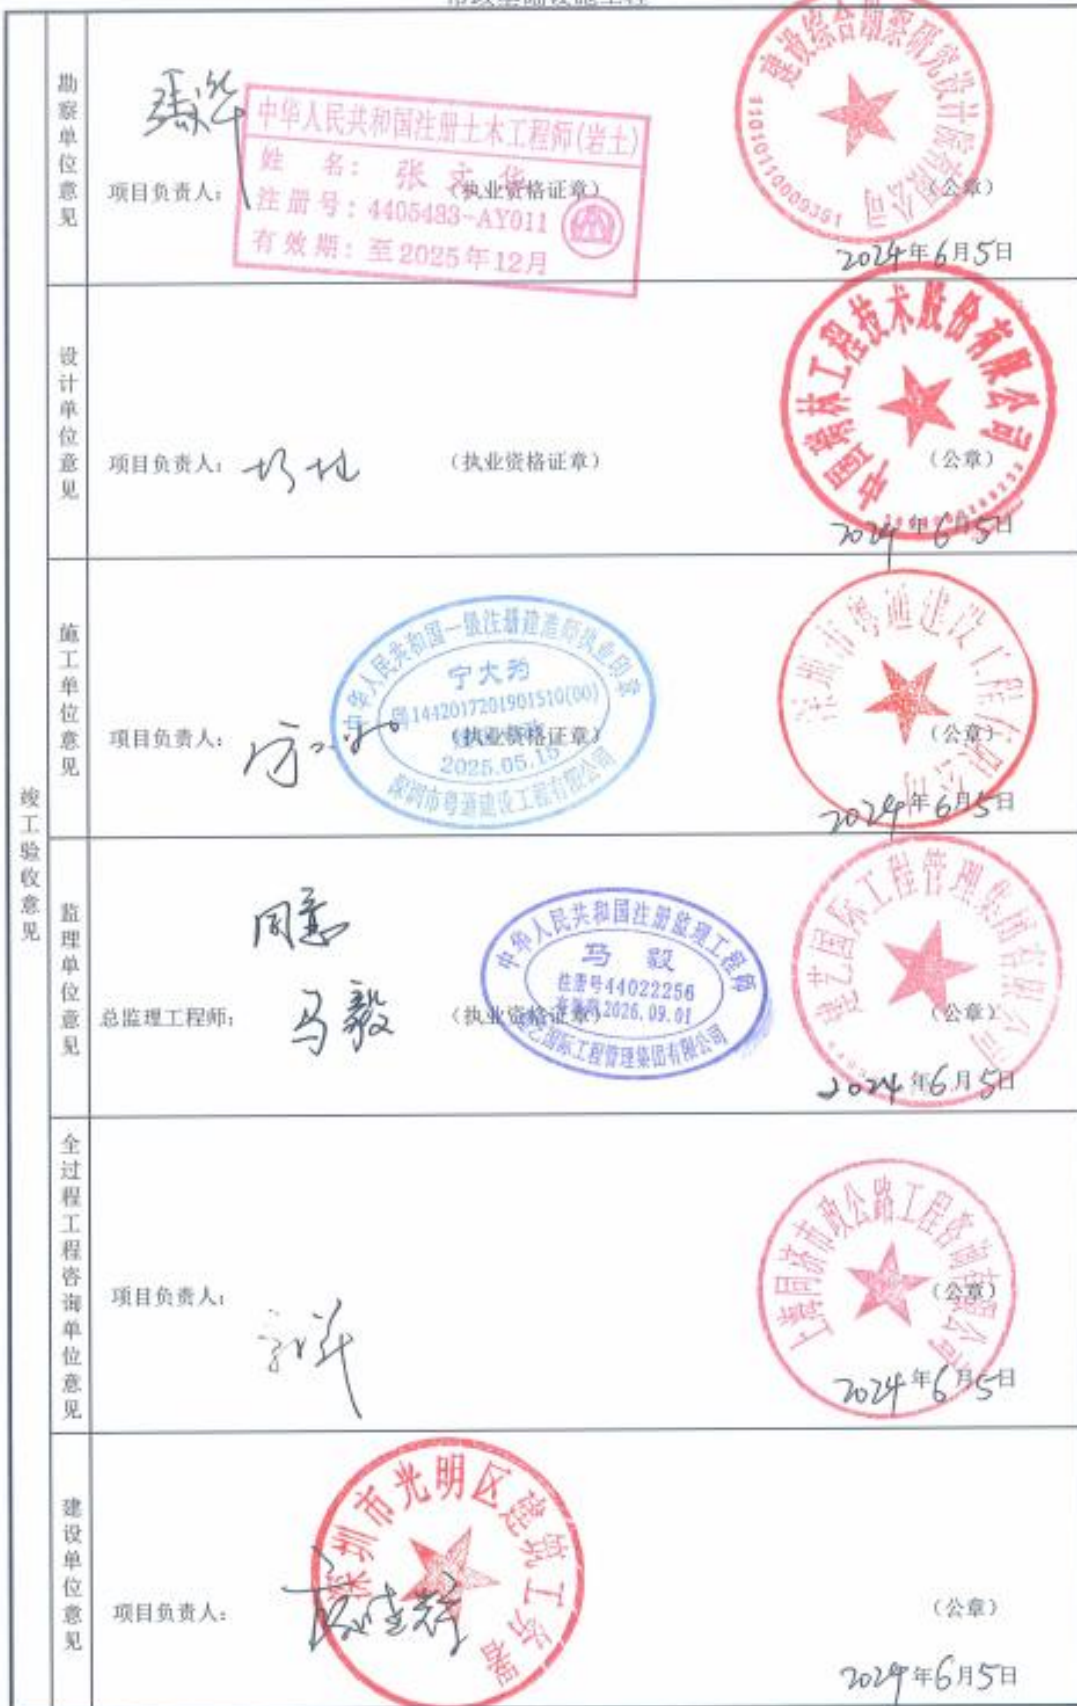 市政基础设施工程
竣工验收意见
勘察单位意见
项目负责人:
中华人民共和国注册土木工程师(岩土)
姓 名: 张文华
注册号: 4405483-AY011
有效期: 至2025年12月
(执业资格证章)
建设综合勘察研究设计院有限公司
1101011000935
(公章)
2024年6月5日
设计单位意见
项目负责人:
(执业资格证章)
中国瑞林工程技术股份有限公司
(公章)
2024年6月5日
施工单位意见
项目负责人:
中华人民共和国一级注册建造师执业印章
宁大为
粤1442017201901510(00)
2025.05.15
深圳市粤通建设工程有限公司
(执业资格证章)
深圳市粤通建设工程有限公司
(公章)
2024年6月5日
监理单位意见
同意
总监理工程师:
马毅
(执业资格证章)
中华人民共和国注册监理工程师
马 毅
注册号44022256
有效期2026.09.01
建艺国际工程管理集团有限公司
建艺国际工程管理集团有限公司
(公章)
2024年6月5日
全过程工程咨询单位意见
项目负责人:
上海同济市政公路工程咨询有限公司
(公章)
2024年6月5日
建设单位意见
项目负责人:
深圳市光明区建筑工务署
(公章)
2024年6月5日